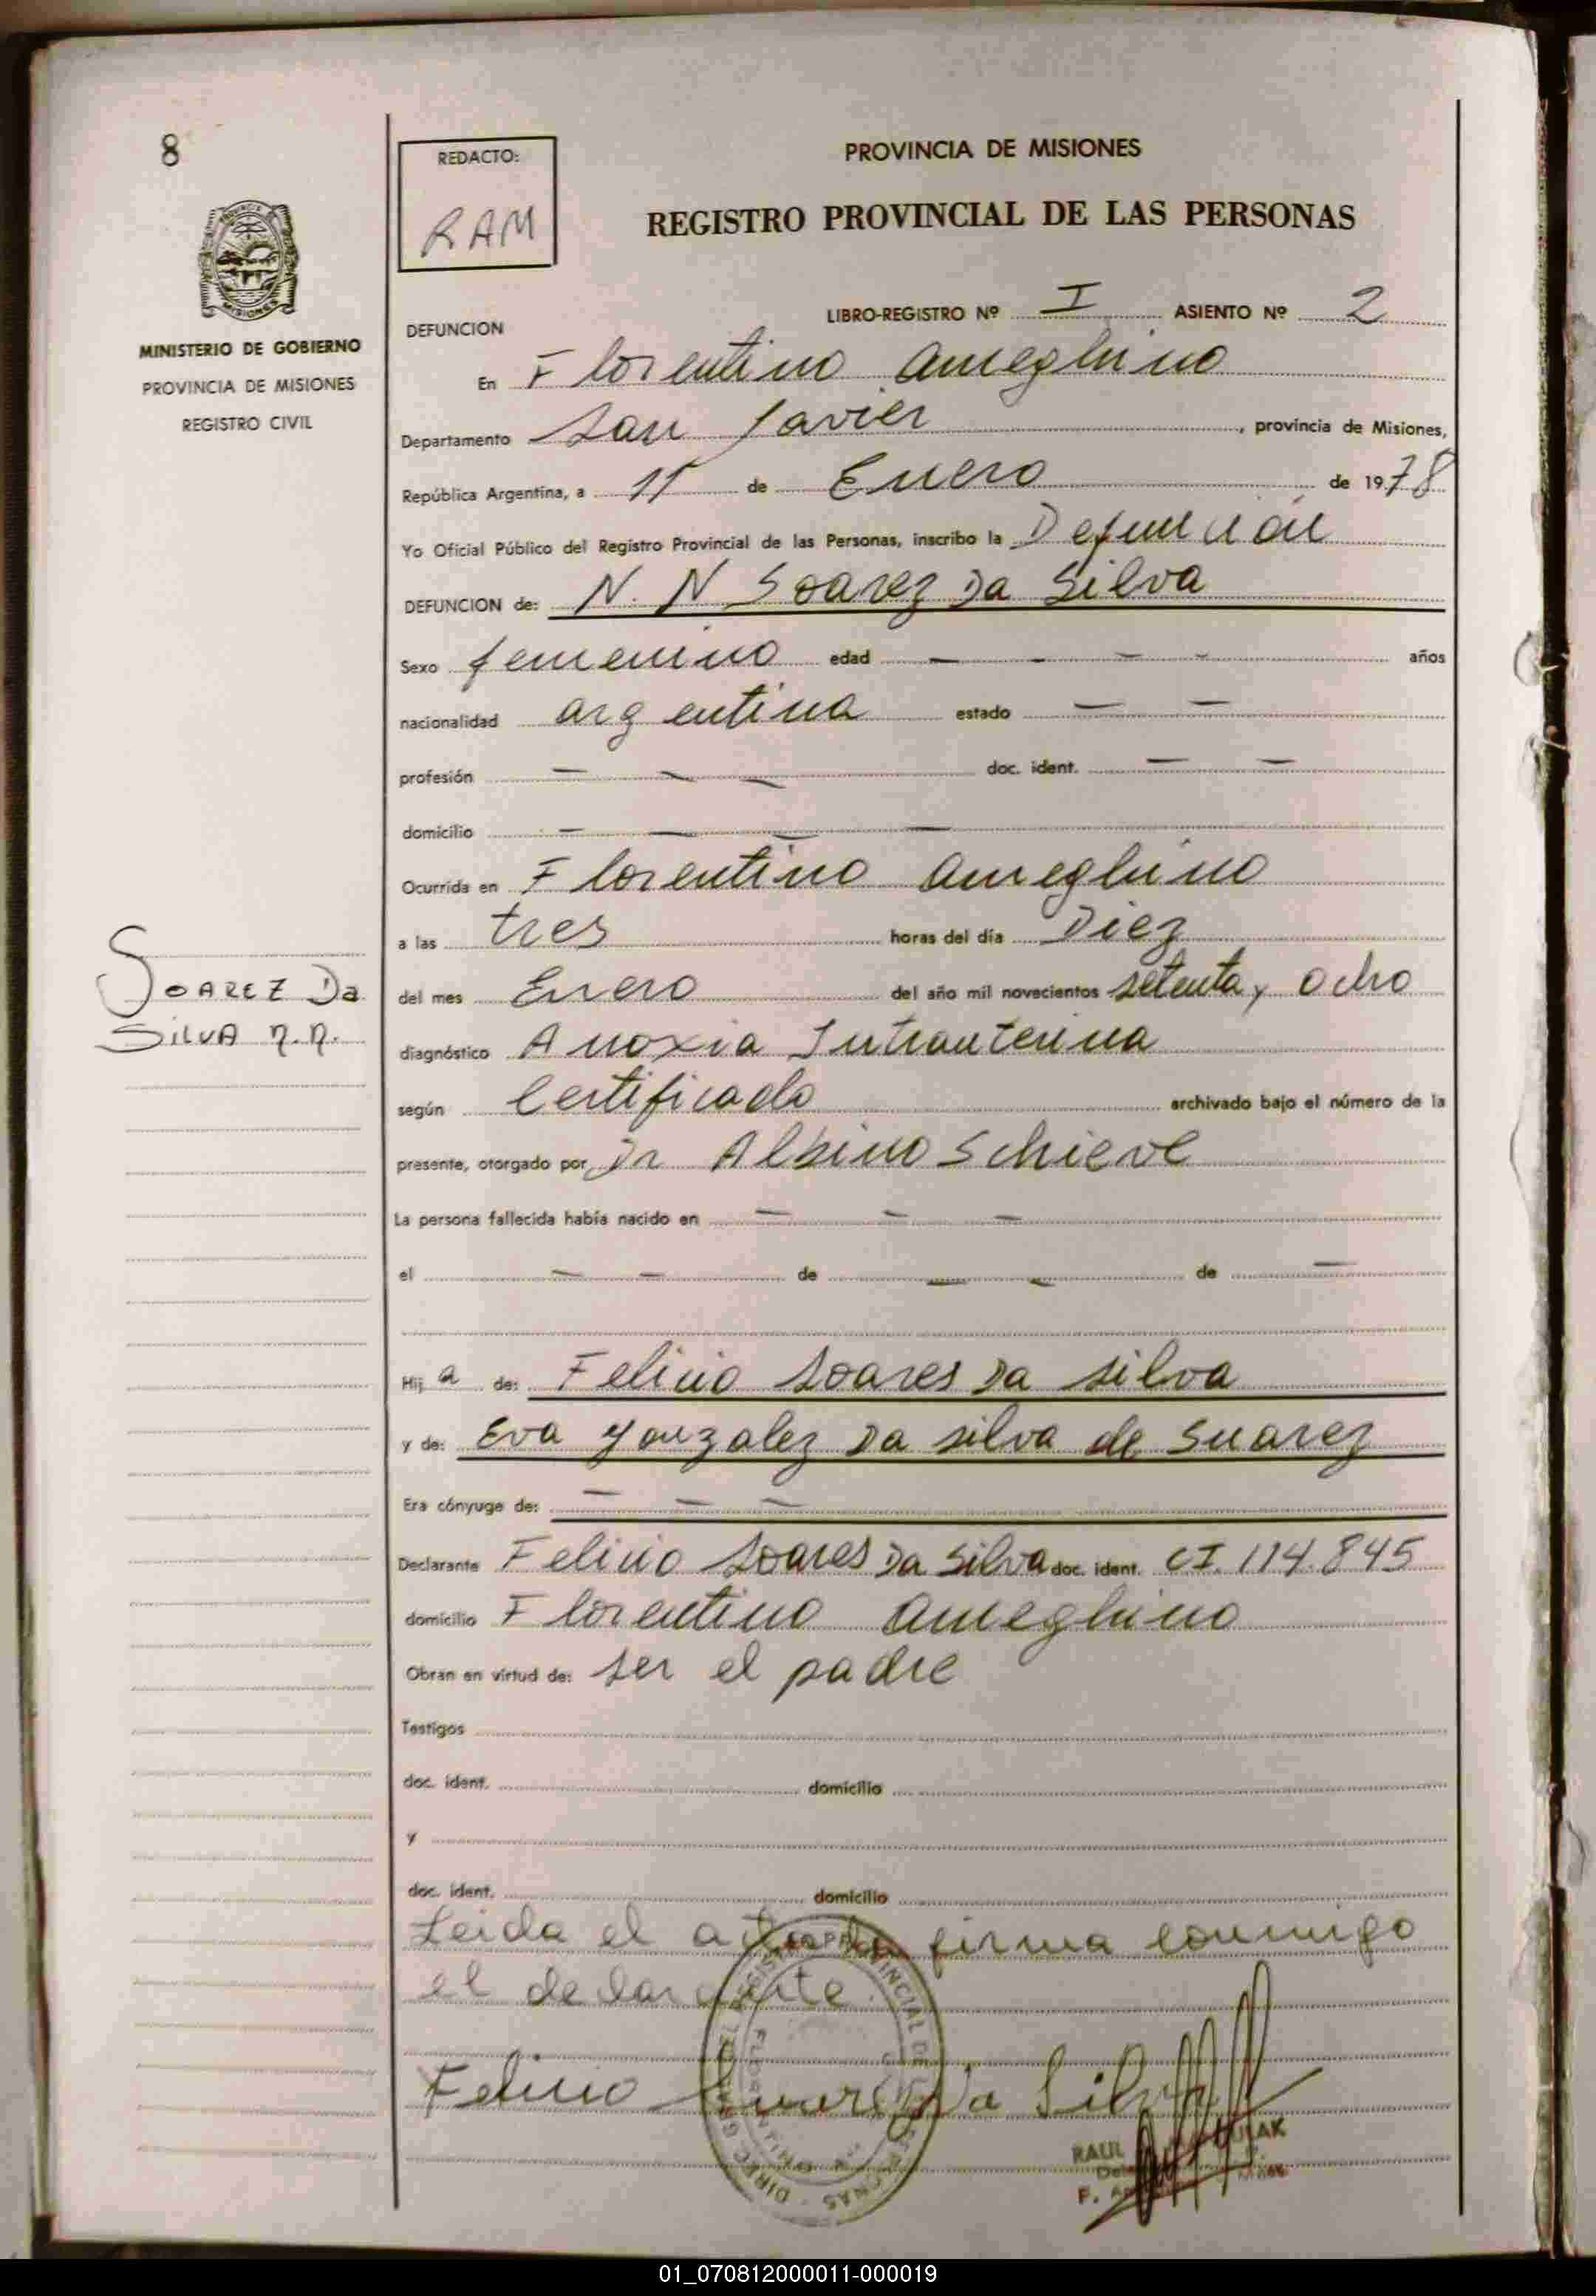 8
REDACTO:
RAM
PROVINCIA DE MISIONES
REGISTRO PROVINCIAL DE LAS PERSONAS
MINISTERIO DE GOBIERNO
PROVINCIA DE MISIONES
REGISTRO CIVIL
LIBRO-REGISTRO Nº I ASIENTO Nº 2
DEFUNCION
En Florentino Ameghino
Departamento San Javier, provincia de Misiones,
República Argentina, a 11 de Enero de 1978
Yo Oficial Público del Registro Provincial de las Personas, inscribo la Defunción
DEFUNCION de: N. N Soarez Da Silva
Sexo femenino edad — — — — años
nacionalidad argentina estado — —
profesión — — — doc. ident. — —
domicilio — — — —
Ocurrida en Florentino Ameghino
a las tres horas del día Diez
del mes Enero del año mil novecientos setenta y ocho
SOAREZ Da
SILVA N.N.
diagnóstico Anoxia Intrauterina
según Certificado archivado bajo el número de la
presente, otorgado por Dr Albino Schieve
La persona fallecida había nacido en — — —
el — — de — — de —
Hija de: Felicio Soares Da silva
y de: Eva Gonzalez Da silva de Suarez
Era cónyuge de: — — —
Declarante Felicio Soares Da Silva doc. ident. CI. 114.845
domicilio Florentino Ameghino
Obran en virtud de: ser el padre
Testigos
doc. ident. domicilio
y
doc. ident. domicilio
Leida el acta la firma conmigo
el declarante.
Felicio Suares Da Silva
RAUL
01_070812000011-000019